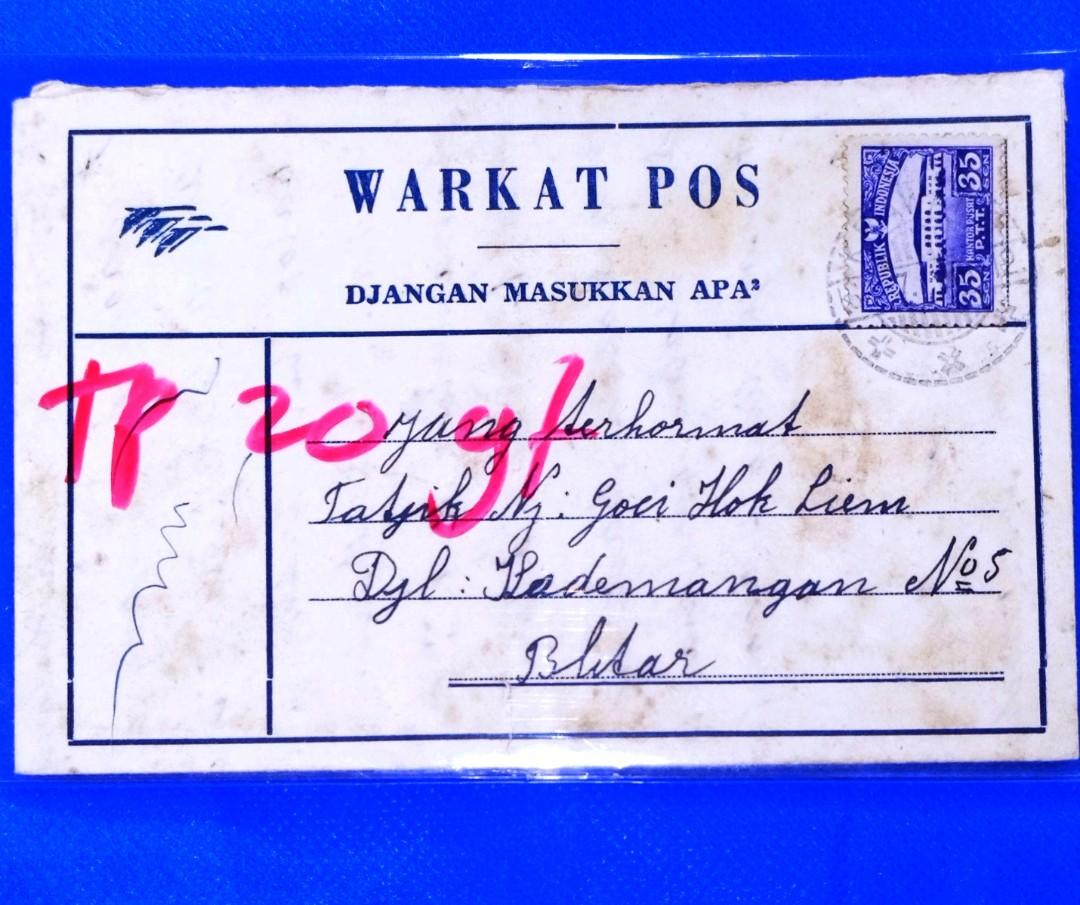 WARKAT POS
DJANGAN MASUKKAN APA²
REPUBLIK INDONESIA
35 SEN
KANTOR PUSAT
P.T.T.
35 SEN
TP 20
yang terhormat
Tatjik Nj: Goei Hok Liem
Djl: Kademangan No 5
Blitar